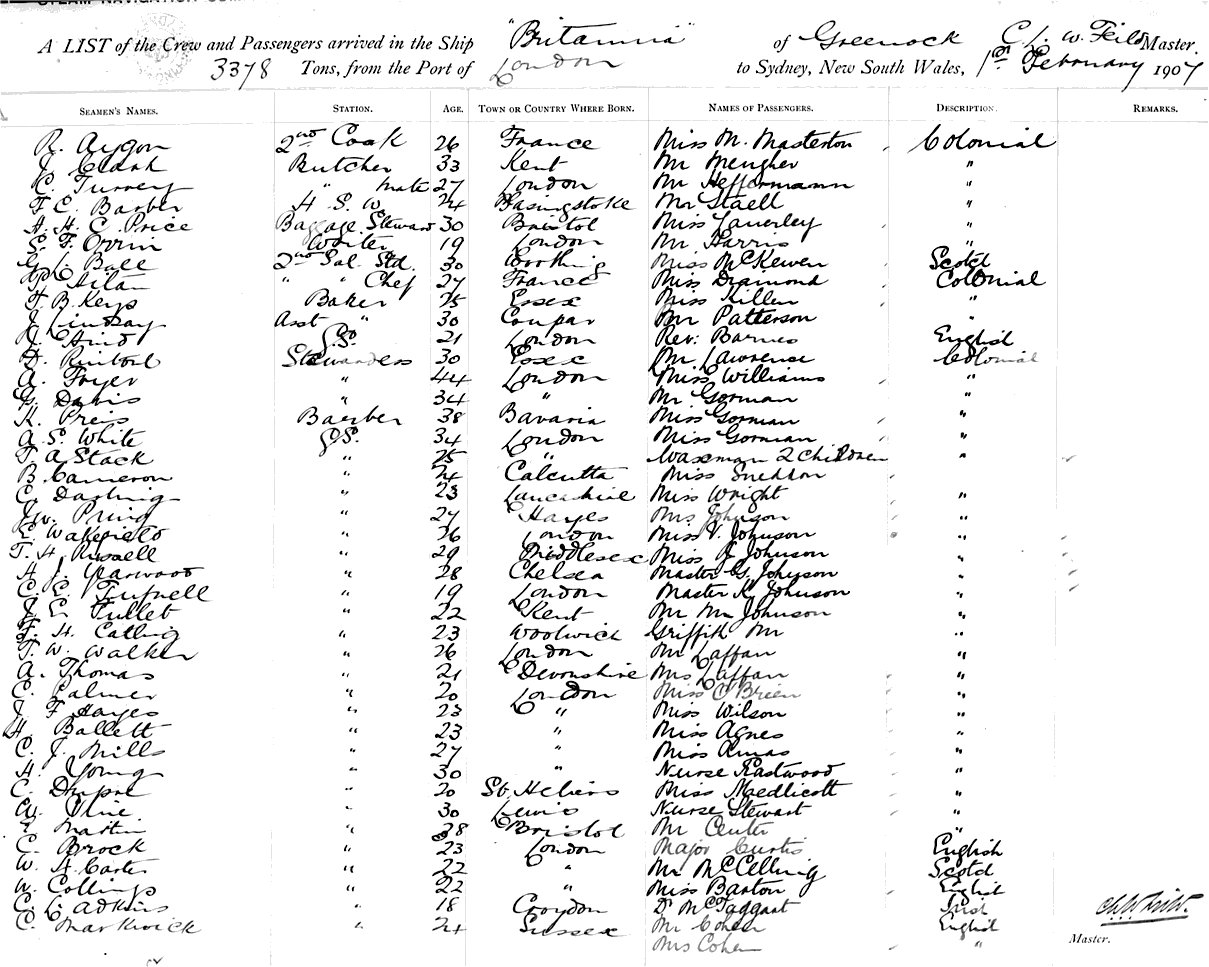 A LIST of the Crew and Passengers arrived in the Ship "Britannia" of Greenock C. W. Feild Master.
3378 Tons, from the Port of London to Sydney, New South Wales, 1st February 1907
SEAMEN'S NAMES. STATION. AGE. TOWN OR COUNTRY WHERE BORN. NAMES OF PASSENGERS. DESCRIPTION. REMARKS.
R. Augon 2nd Cook 26 France Miss M. Masterton Colonial
J. Clark Butcher 33 Kent Mr Meagher "
C. Turrey " mate 27 London Mr Heffermann "
F. C. Barber H. S. W. 24 Basingstoke Mr Staell "
H. H. C. Price Baggage Steward 30 Bristol Miss Lauerley "
S. F. Orrin Writer 19 London Mr Harris "
G. L. Ball 2nd Sal. Std. 30 Worthing Miss McKewen Scotch
P. Ailan " " Chef 27 France Miss Diamond Colonial
F. B. Keys Baker 25 Essex Miss Killen "
J. Lindsay Asst " 30 Coupar Mr Patterson "
A. Hind G.S. 21 London Rev: Barnes English
D. Stewardess 30 Essex Mr Lawrence Colonial
A. Fryer " 44 London Miss Williams "
G. Davis " 34 " Mr Gorman "
K. Preis Baerber 38 Bavaria Miss Gorman "
A. S. White G.S. 34 London Miss Gorman "
F. A. Stack " 25 " Waxman 2 Children "
B. Cameron " 24 Calcutta Miss Sneddon
C. Darling " 23 Lancashire Miss Wright "
J. W. Pring " 27 Hayes Mrs Johnson "
E. Wakefield " 26 London Miss V. Johnson "
T. H. Russell " 29 Middlesex Miss J. Johnson "
H. J. Yarwood " 28 Chelsea Master G. Johnson "
C. E. Tufnell " 19 London Master K. Johnson "
J. E. Fullet " 22 Kent Mr Mr Johnson "
F. H. Catling " 23 Woolwich Griffith Mr "
T. W. Walker " 26 London Mr Laffan "
A. Thomas " 21 Devonshire Mrs Laffan "
C. Palmer " 20 London Miss O'Brien "
J. F. Hayes " 23 " Miss Wilson "
H. Ballett " 23 " Miss Agnes "
C. J. Mills " 27 " Miss Amas "
H. Young " 30 Nurse Eastwood "
C. Dupre " 20 St. Heliers Miss Maedlicott "
W. Cline " 30 Lewis Nurse Stewart "
E. Martin " 28 Bristol Mr Center "
C. Brock " 23 London Major Curtis English
W. H. Carter " 22 " Mr McCelling Scotch
W. Collings " 22 " Miss Barton English
C. C. Adkins " 18 Croydon Dr McTaggart Irish
C. Markwick " 24 Sussex Mr Cohen English
Mrs Cohen "
C. W. Feild.
Master.